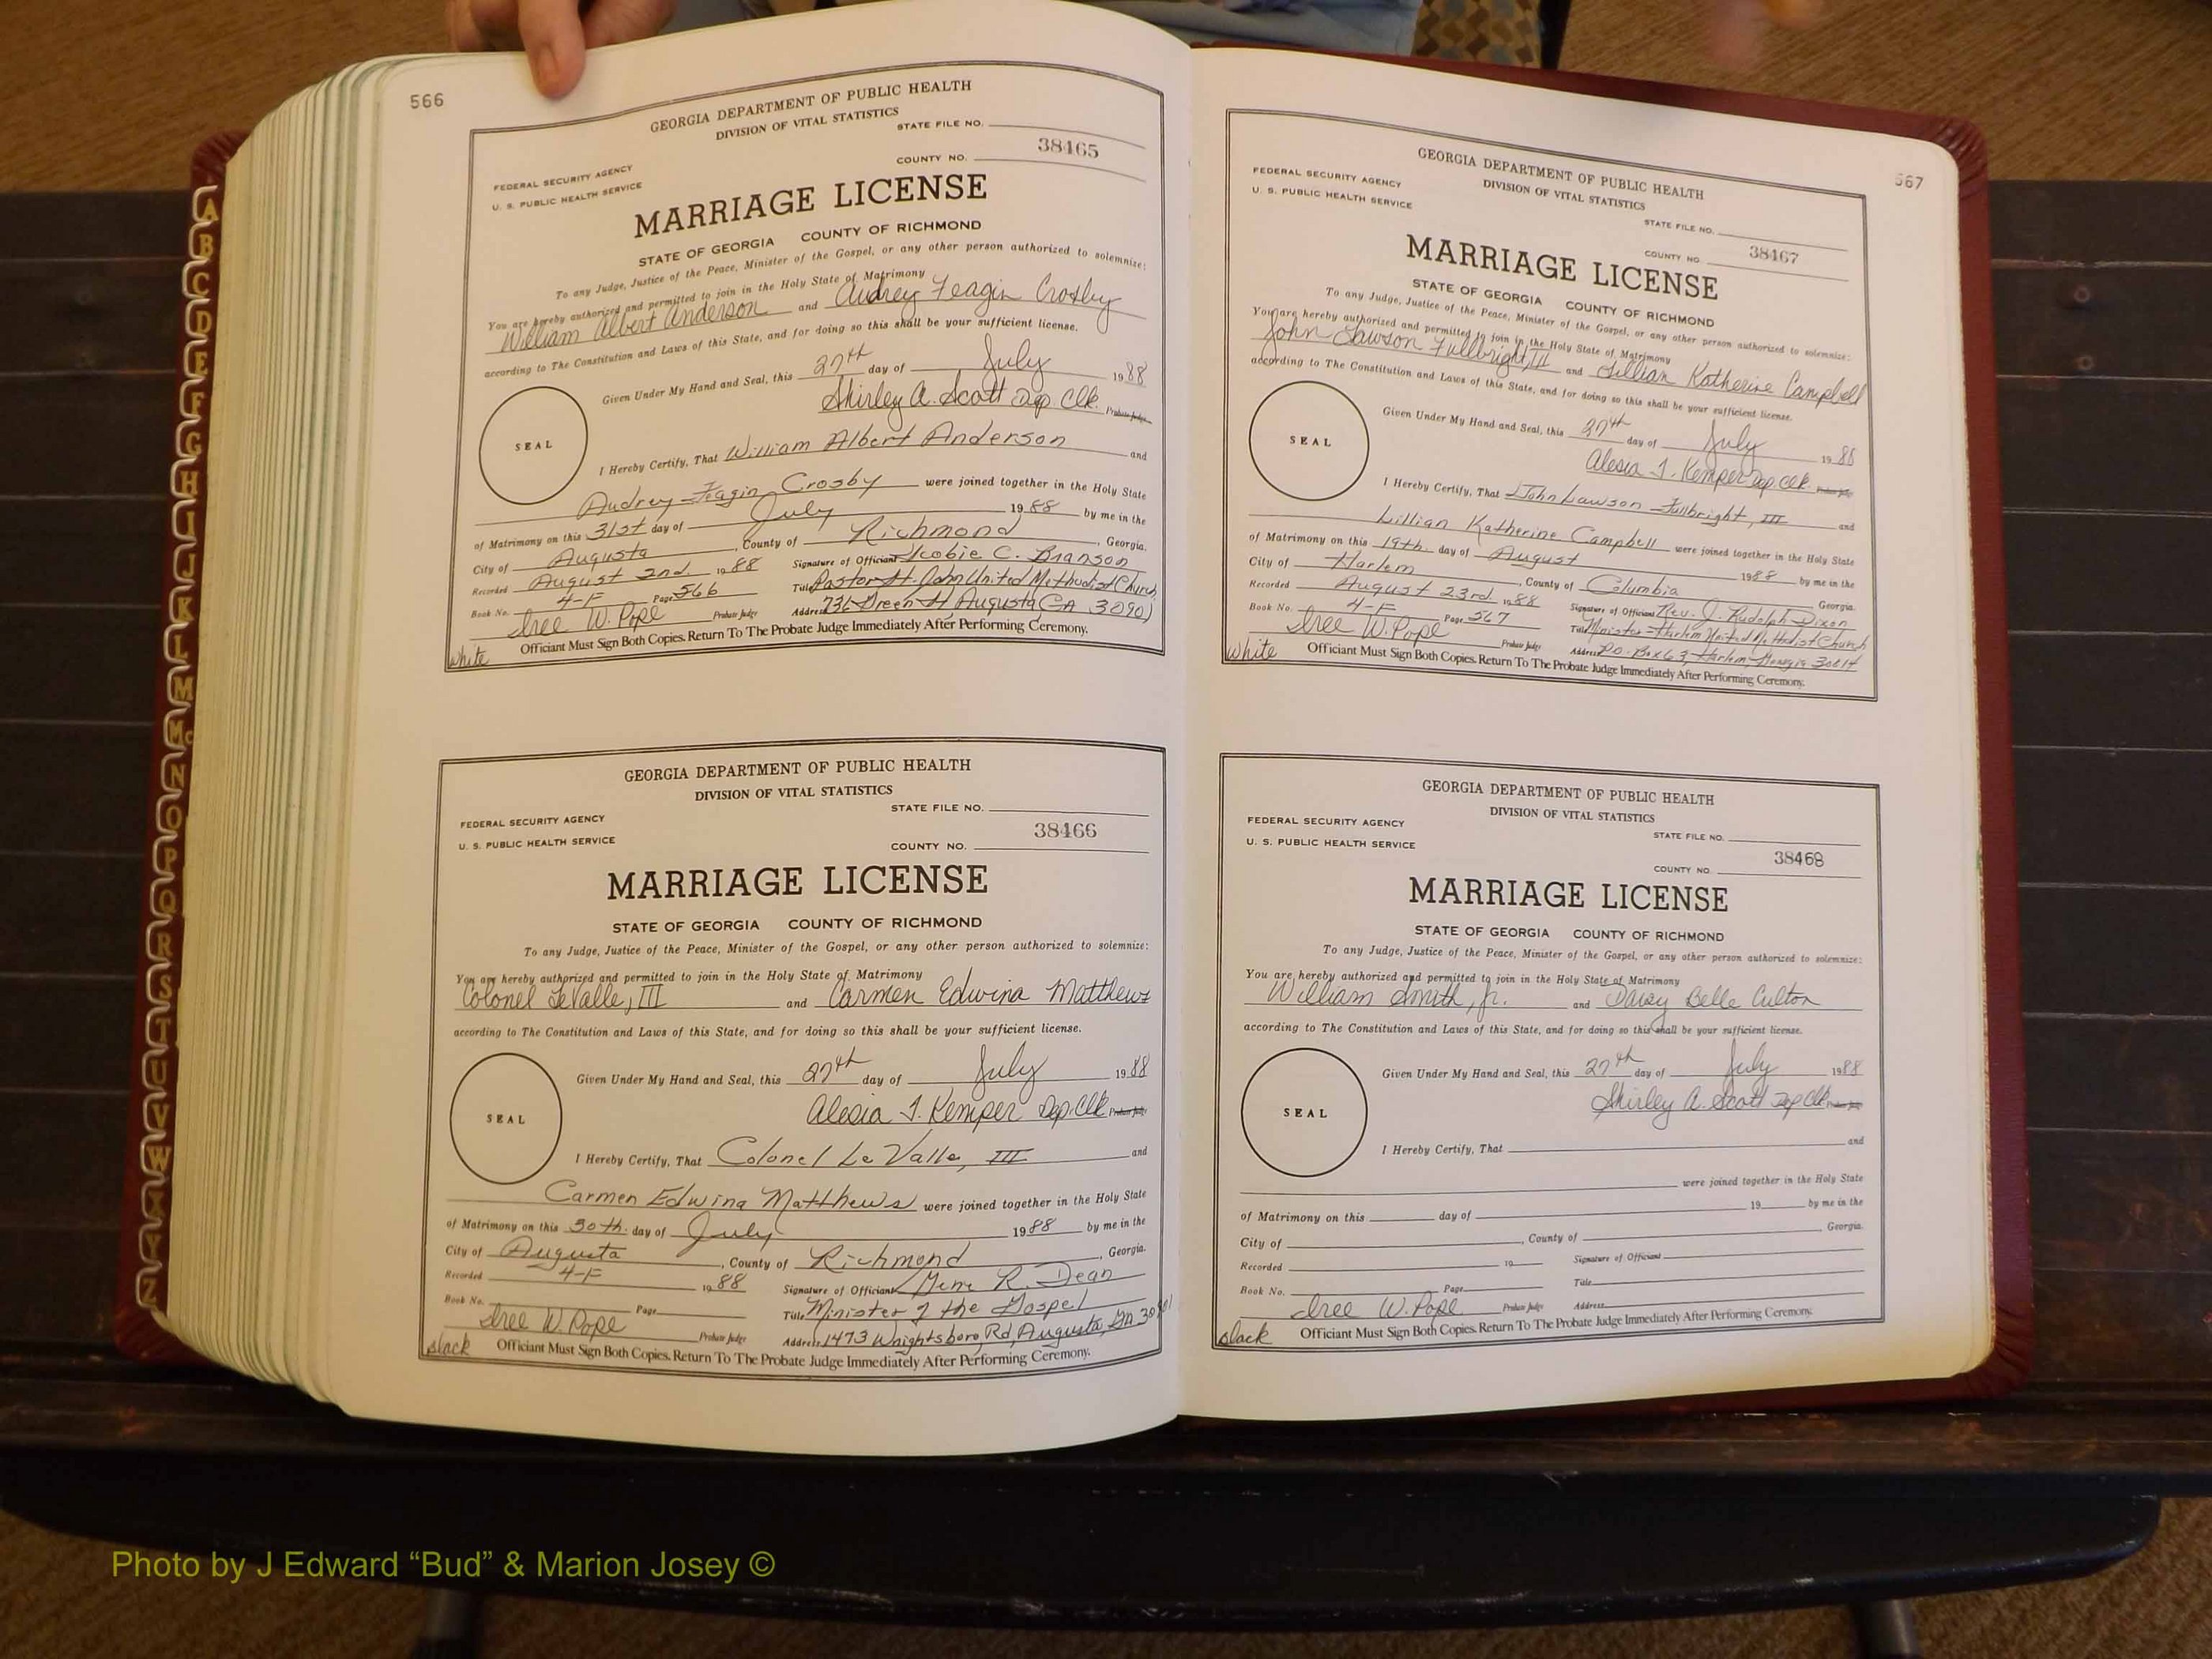 566
GEORGIA DEPARTMENT OF PUBLIC HEALTH
DIVISION OF VITAL STATISTICS
STATE FILE NO.
38465
FEDERAL SECURITY AGENCY
COUNTY NO.
U. S. PUBLIC HEALTH SERVICE
MARRIAGE LICENSE
STATE OF GEORGIA COUNTY OF RICHMOND
To any Judge, Justice of the Peace, Minister of the Gospel, or any other person authorized to solemnize:
You are hereby authorized and permitted to join in the Holy State of Matrimony
William Albert Anderson and Audrey Feagin Crosby
according to The Constitution and Laws of this State, and for doing so this shall be your sufficient license.
Given Under My Hand and Seal, this 27th day of July 1988
Shirley A. Scott Dep Clk. Probate Judge
SEAL
I Hereby Certify, That William Albert Anderson and
Audrey Feagin Crosby were joined together in the Holy State
of Matrimony on this 31st day of July 1988 by me in the
City of Augusta, County of Richmond, Georgia.
Recorded August 2nd 1988 Signature of Officiant Scobie C. Branson
Book No. 4-F Page 566 Title Pastor St. John United Methodist Church
Iree W. Pope Probate Judge Address 736 Green St Augusta GA 30901
white Officiant Must Sign Both Copies. Return To The Probate Judge Immediately After Performing Ceremony.
GEORGIA DEPARTMENT OF PUBLIC HEALTH
DIVISION OF VITAL STATISTICS
STATE FILE NO.
FEDERAL SECURITY AGENCY
38466
U. S. PUBLIC HEALTH SERVICE
COUNTY NO.
MARRIAGE LICENSE
STATE OF GEORGIA COUNTY OF RICHMOND
To any Judge, Justice of the Peace, Minister of the Gospel, or any other person authorized to solemnize:
You are hereby authorized and permitted to join in the Holy State of Matrimony
Colonel LeValle, III and Carmen Edwina Matthews
according to The Constitution and Laws of this State, and for doing so this shall be your sufficient license.
Given Under My Hand and Seal, this 27th day of July 1988
Alesia J. Kemper Dep. Clk Probate Judge
SEAL
I Hereby Certify, That Colonel Le Valle, III and
Carmen Edwina Matthews were joined together in the Holy State
of Matrimony on this 30th. day of July 1988 by me in the
City of Augusta, County of Richmond, Georgia.
Recorded 4-F 1988 Signature of Officiant Gene R. Dean
Book No. Page Title Minister of the Gospel
Iree W. Pope Probate Judge Address 1473 Wrightsboro Rd, Augusta, GA 30901
black Officiant Must Sign Both Copies. Return To The Probate Judge Immediately After Performing Ceremony.
567
GEORGIA DEPARTMENT OF PUBLIC HEALTH
DIVISION OF VITAL STATISTICS
FEDERAL SECURITY AGENCY
STATE FILE NO.
U. S. PUBLIC HEALTH SERVICE
38467
COUNTY NO.
MARRIAGE LICENSE
STATE OF GEORGIA COUNTY OF RICHMOND
To any Judge, Justice of the Peace, Minister of the Gospel, or any other person authorized to solemnize:
You are hereby authorized and permitted to join in the Holy State of Matrimony
John Lawson Fullbright, III and Lillian Katherine Campbell
according to The Constitution and Laws of this State, and for doing so this shall be your sufficient license.
Given Under My Hand and Seal, this 27th day of July 1988
Alesia J. Kemper Dep Clk. Probate Judge
SEAL
I Hereby Certify, That John Lawson Fullbright, III and
Lillian Katherine Campbell were joined together in the Holy State
of Matrimony on this 19th. day of August 1988 by me in the
City of Harlem, County of Columbia Georgia.
Recorded August 23rd. 1988 Signature of Officiant Rev. J. Rudolph Dixon
Book No. 4-F Page 567 Title Minister-Harlem United Methodist Church
Iree W. Pope Probate Judge Address P.O. Box 63, Harlem, Georgia 30814
white Officiant Must Sign Both Copies. Return To The Probate Judge Immediately After Performing Ceremony.
GEORGIA DEPARTMENT OF PUBLIC HEALTH
DIVISION OF VITAL STATISTICS
FEDERAL SECURITY AGENCY
STATE FILE NO.
U. S. PUBLIC HEALTH SERVICE
38468
COUNTY NO.
MARRIAGE LICENSE
STATE OF GEORGIA COUNTY OF RICHMOND
To any Judge, Justice of the Peace, Minister of the Gospel, or any other person authorized to solemnize:
You are hereby authorized and permitted to join in the Holy State of Matrimony
William Smith, Jr. and Daisy Belle Culton
according to The Constitution and Laws of this State, and for doing so this shall be your sufficient license.
Given Under My Hand and Seal, this 27th day of July 1988
Shirley A. Scott Dep Clk Probate Judge
SEAL
I Hereby Certify, That and
were joined together in the Holy State
of Matrimony on this day of 19 by me in the
City of , County of Georgia.
Recorded 19 Signature of Officiant
Book No. Page Title
Iree W. Pope Probate Judge Address
black Officiant Must Sign Both Copies. Return To The Probate Judge Immediately After Performing Ceremony.
A
B
C
D
E
F
G
H
I
J
K
L
M
Mc
N
O
P
Q
R
S
T
U
V
W
X
Y
Z
Photo by J Edward “Bud” & Marion Josey ©